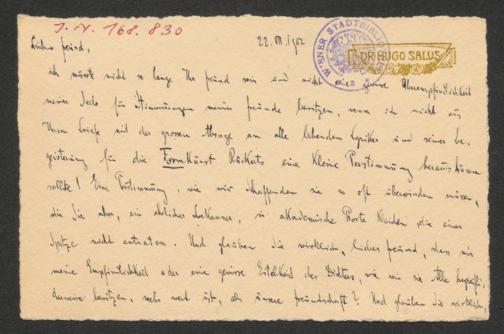 J. N. 168.830
WIENER STADTBIBLIOTHEK
DR HUGO SALUS
Lieber Freund,
22. VII. 1902
ich müsste nicht so lange Ihr Freund sein und nicht eine gewisse
meiner Seele für Stimmungen meiner Freunde besitzen, wenn ich nicht aus
Ihrem Briefe mit der grossen Absage an alle lebenden Lyriker und seiner Be-
geisterung für die Formkunst Rückerts eine kleine Verstimmung heraushören
sollte! Eine Verstimmung, wie wir Schaffenden sie so oft überwinden müssen,
die Sie aber, ein ehrlicher, in akademische Worte kleiden, die einer
Spitze nicht entraten. Und glauben Sie wirklich, lieber Freund, dass mir
meine Empfindlichkeit oder eine gewisse Eitelkeit des Dichters, wie wir sie Alle begreifli-
cherweise besitzen, mehr wert ist, als unsere Freundschaft? Und glauben Sie wirklich,